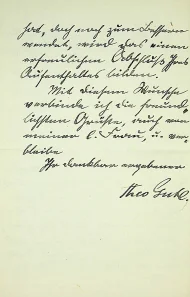 hat, doch noch zum Besseren
wendet, wird das einen
erfreulichen Abschluß Ihres
Aufenthaltes bilden.
Mit diesem Wunsche
verbinde ich die freund-
lichsten Grüße, auch von
meiner l. Frau, u. ver-
bleibe
Ihr dankbar ergebener
Theo